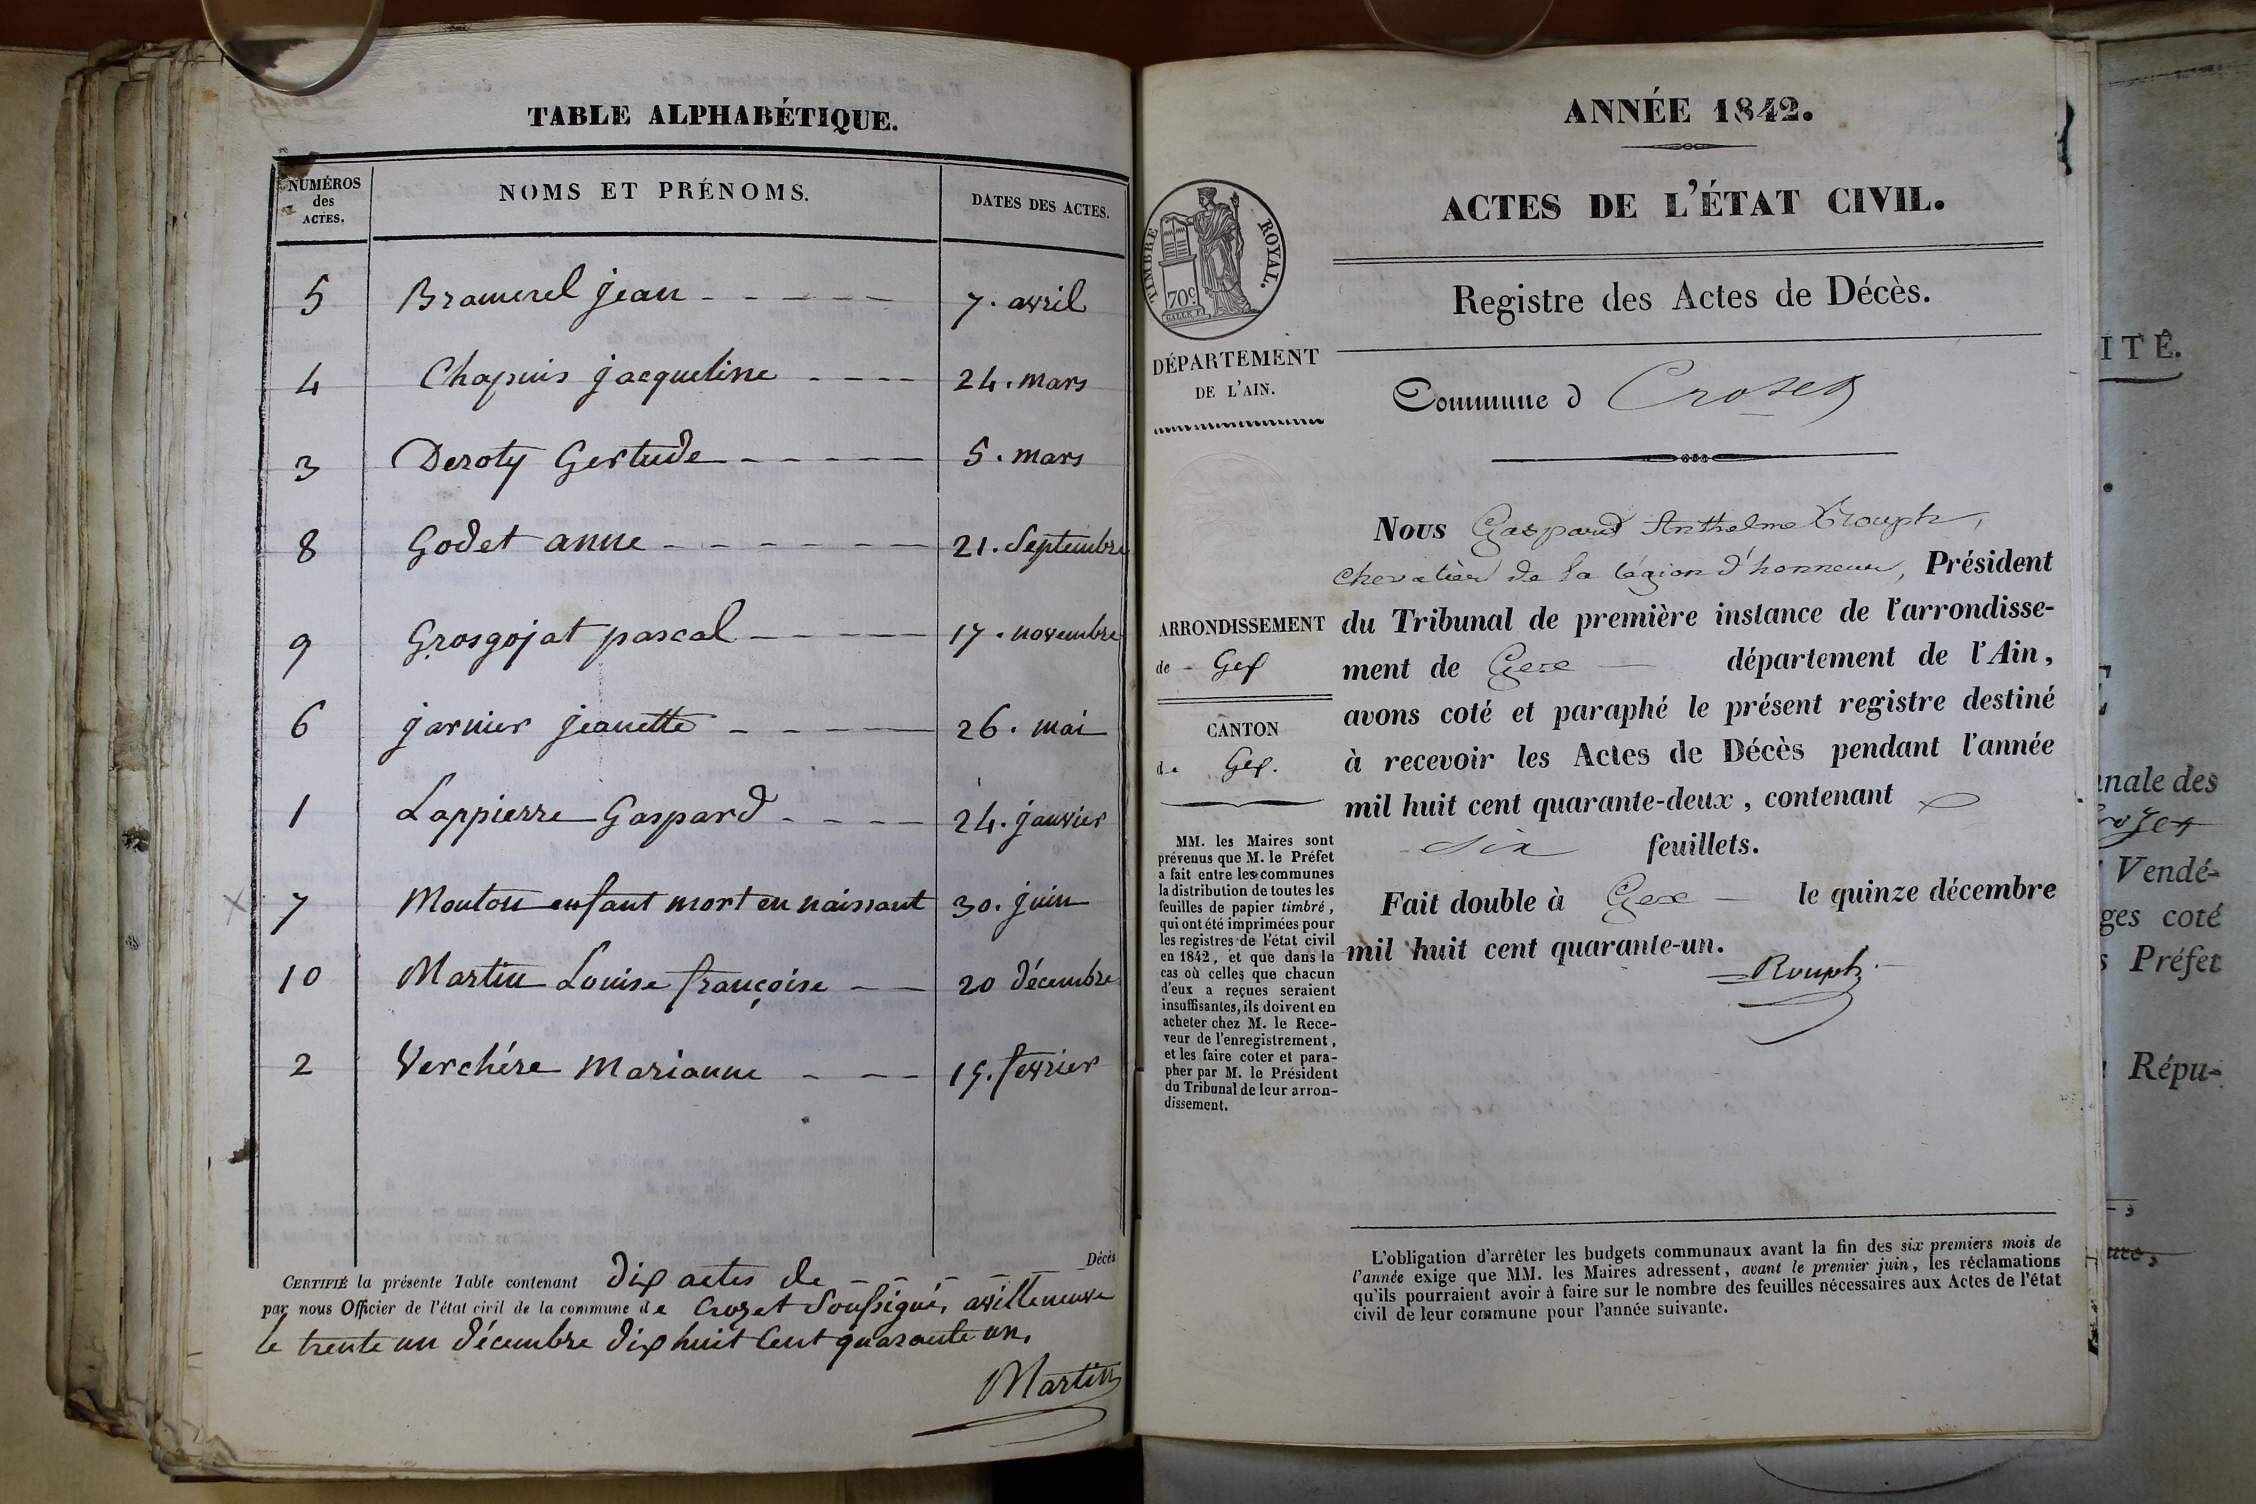 TABLE ALPHABÉTIQUE.
NUMÉROS des ACTES. NOMS ET PRÉNOMS. DATES DES ACTES.
5 Bramerel jean 7. avril
4 Chapuis jacqueline 24. mars
3 Deroty Gertude 5. mars
8 Godet anne 21. Septembre
9 Grosgojat pascal 17. novembre
6 jarnier jeanette 26. mai
1 Lappierre Gaspard 24. janvier
7 Mouton enfant mort en naissant 30. juin
10 Martin Louise françoise 20 décembre
2 Verchére Marianne 15. fevrier
Décès
CERTIFIÉ la présente Table contenant dix actes de
par nous Officier de l'état civil de la commune de Crozet Soussigné, avilleneuve
le trente un décembre dix huit Cent quarante un.
Martin
ANNÉE 1842.
ACTES DE L'ÉTAT CIVIL.
TIMBRE ROYAL.
70c.
Registre des Actes de Décès.
DÉPARTEMENT
DE L'AIN.
Commune d Crozet
Nous Gaspard Anthelme Rouph,
chevalier de la légion d'honneur, Président
du Tribunal de première instance de l'arrondisse-
ment de Gex département de l'Ain,
avons coté et paraphé le présent registre destiné
à recevoir les Actes de Décès pendant l'année
mil huit cent quarante-deux, contenant
six feuillets.
Fait double à Gex le quinze décembre
mil huit cent quarante-un.
Rouph
ARRONDISSEMENT
de Gex
CANTON
de Gex.
MM. les Maires sont
prévenus que M. le Préfet
a fait entre les communes
la distribution de toutes les
feuilles de papier timbré,
qui ont été imprimées pour
les registres de l'état civil
en 1842, et que dans le
cas où celles que chacun
d'eux a reçues seraient
insuffisantes, ils doivent en
acheter chez M. le Rece-
veur de l'enregistrement,
et les faire coter et para-
pher par M. le Président
du Tribunal de leur arron-
dissement.
L'obligation d'arrêter les budgets communaux avant la fin des six premiers mois de
l'année exige que MM. les Maires adressent, avant le premier juin, les réclamations
qu'ils pourraient avoir à faire sur le nombre des feuilles nécessaires aux Actes de l'état
civil de leur commune pour l'année suivante.
ITÉ.
nale des
Vendé-
ges coté
Préfet
Répu-